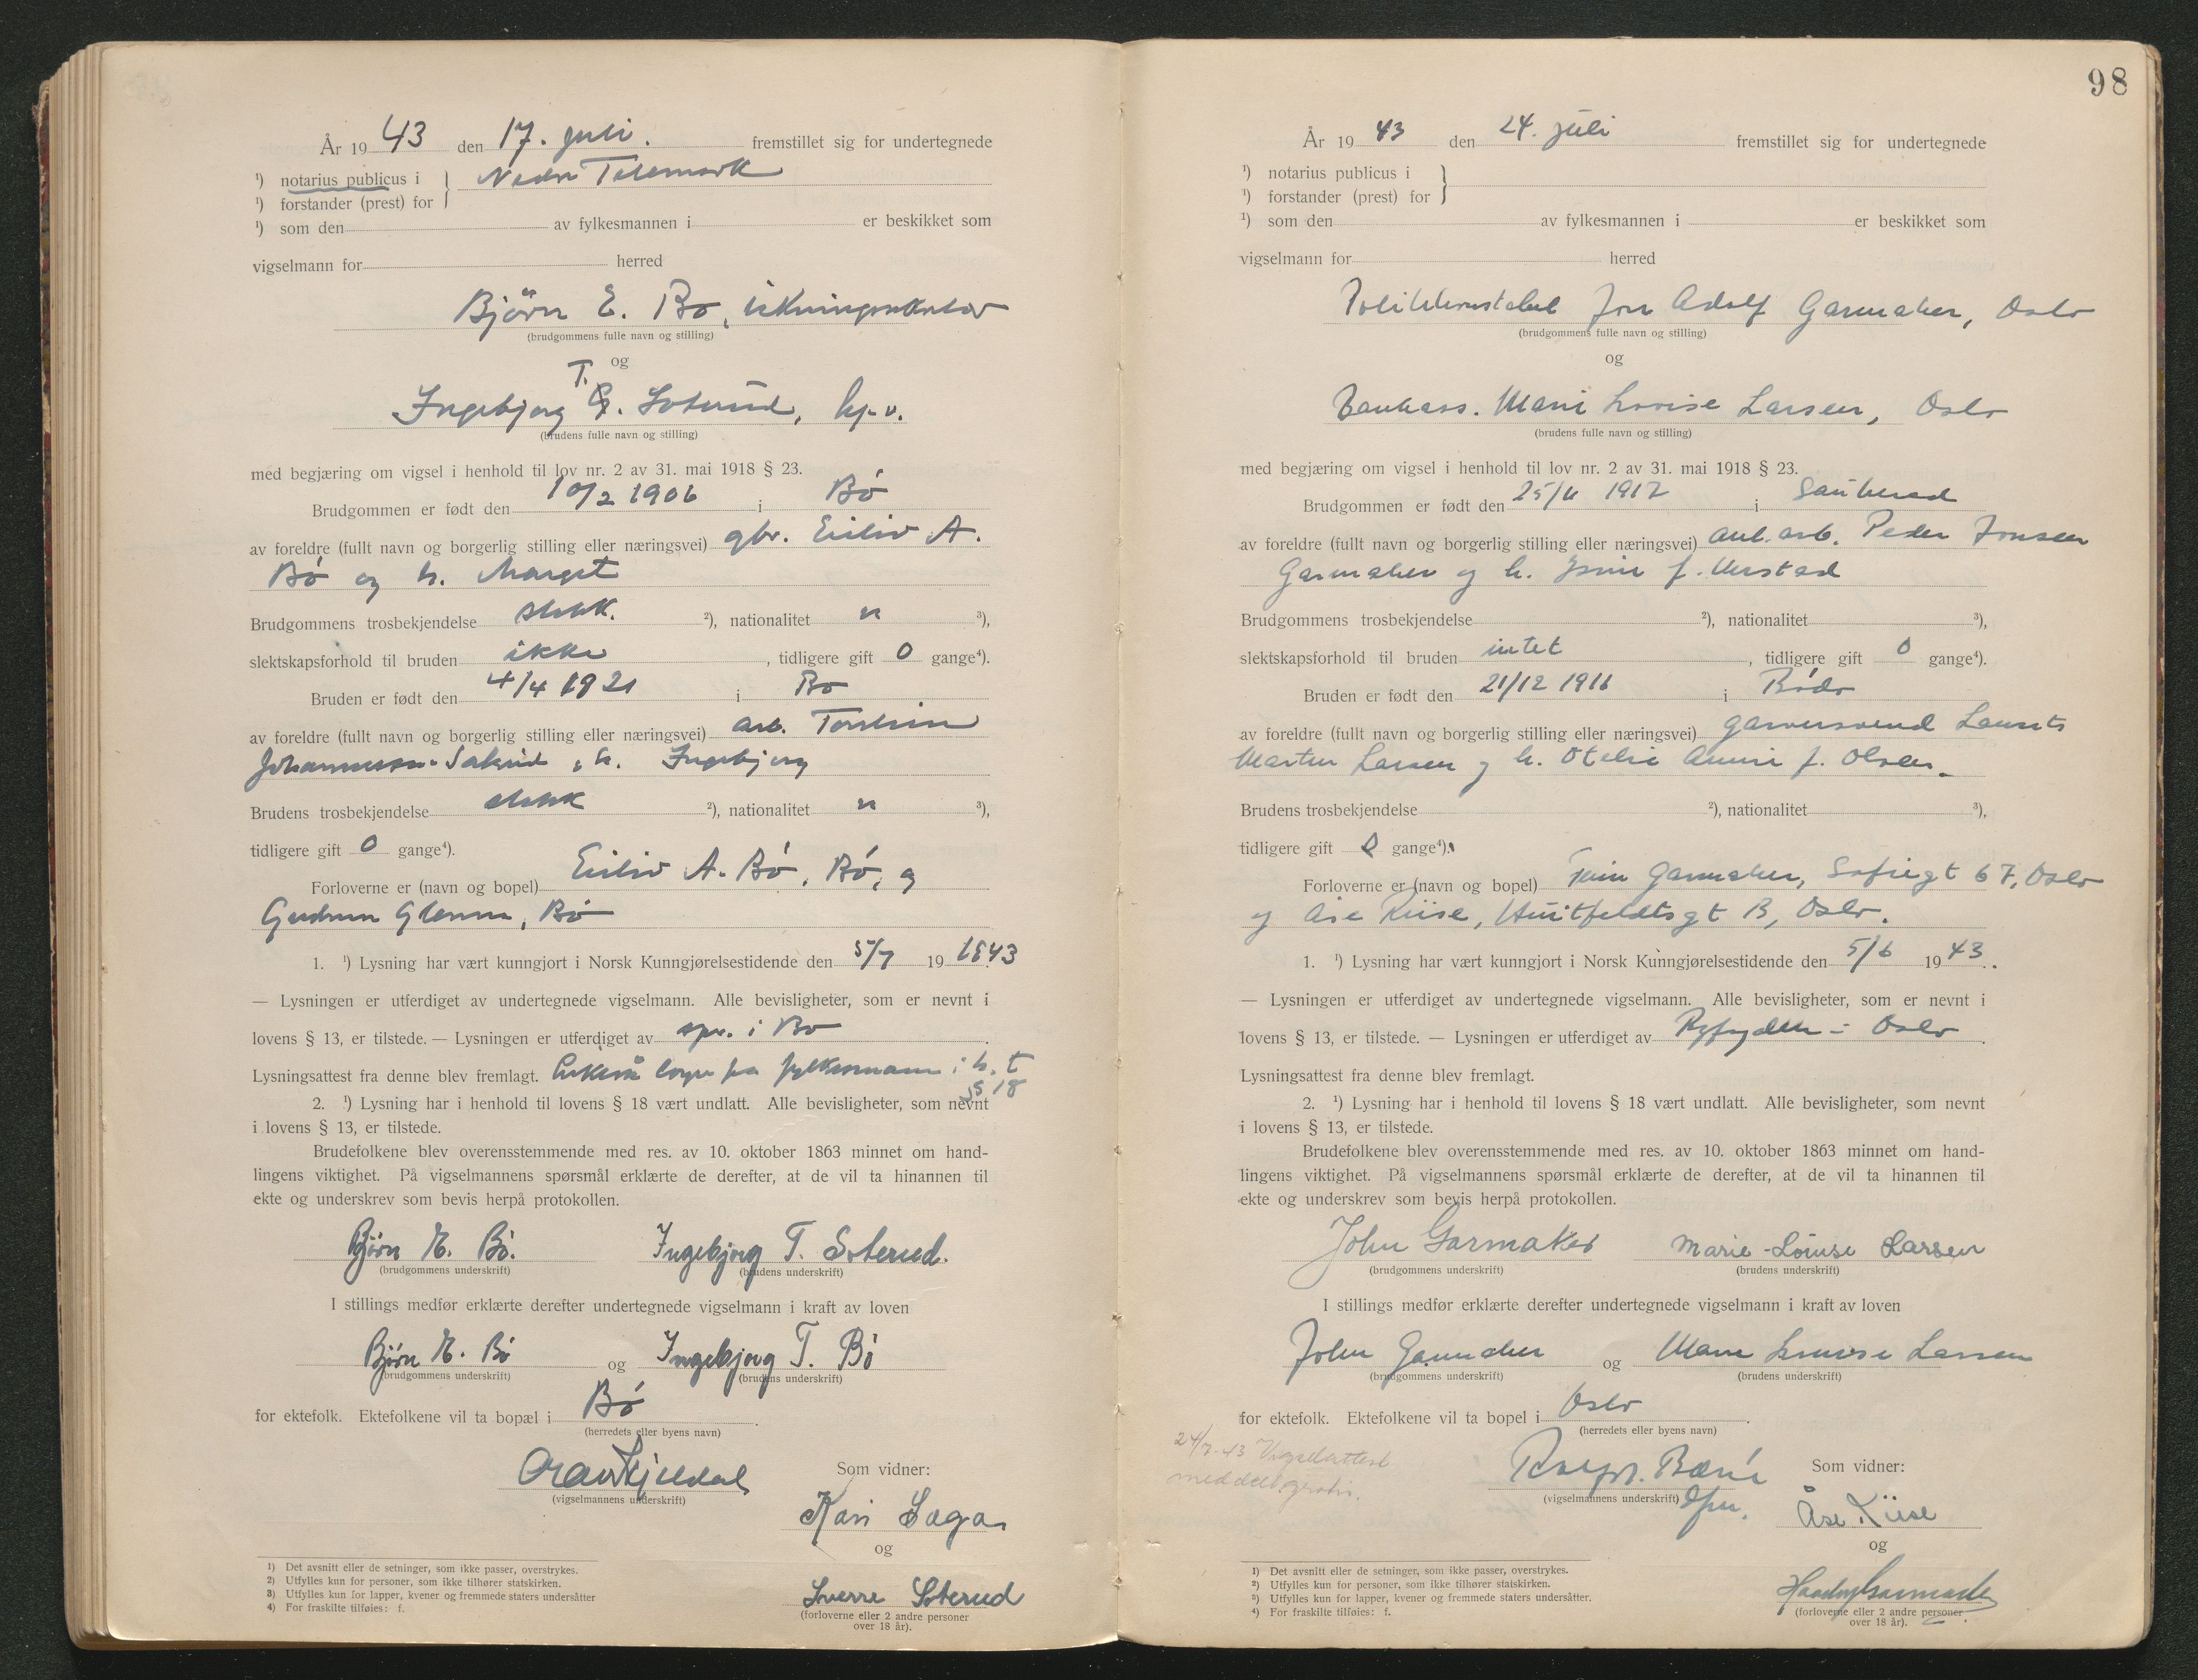 År 19 43 den 17. juli. fremstillet sig for undertegnede
¹) notarius publicus i } Nedre Telemark
¹) forstander (prest) for
¹) som den av fylkesmannen i er beskikket som
vigselmann for herred
Bjørn E. Bø,
(brudgommens fulle navn og stilling)
og
T.
Ingebjørg G. Soterud,
(brudens fulle navn og stilling)
med begjæring om vigsel i henhold til lov nr. 2 av 31. mai 1918 § 23.
Brudgommen er født den 10/2 1906 i Bø
av foreldre (fullt navn og borgerlig stilling eller næringsvei) gbr. Eiliv A.
Bø og h. Marget
Brudgommens trosbekjendelse stskk. ²), nationalitet n ³),
slektskapsforhold til bruden ikke, tidligere gift 0 gange⁴).
Bruden er født den 4/4 1921 i Bø
av foreldre (fullt navn og borgerlig stilling eller næringsvei) arb.
h. Ingebjørg
Brudens trosbekjendelse stskk ²), nationalitet n ³),
tidligere gift 0 gange⁴).
Forloverne er (navn og bopel) Eiliv A. Bø, Bø, og
Gudrun Glenna, Bø
1. ¹) Lysning har vært kunngjort i Norsk Kunngjørelsestidende den 5/7 19 1943
— Lysningen er utferdiget av undertegnede vigselmann. Alle bevisligheter, som er nevnt i
lovens § 13, er tilstede. — Lysningen er utferdiget av spr. i Bø
Lysningsattest fra denne blev fremlagt. fra fylkesmann i h. t
§ 18
2. ¹) Lysning har i henhold til lovens § 18 vært undlatt. Alle bevisligheter, som nevnt
i lovens § 13, er tilstede.
Brudefolkene blev overensstemmende med res. av 10. oktober 1863 minnet om hand-
lingens viktighet. På vigselmannens spørsmål erklærte de derefter, at de vil ta hinannen til
ekte og underskrev som bevis herpå protokollen.
Bjørn E. Bø. Ingebjørg T. Soterud.
(brudgommens underskrift) (brudens underskrift)
I stillings medfør erklærte derefter undertegnede vigselmann i kraft av loven
Bjørn E. Bø og Ingebjørg T. Bø
(brudgommens underskrift) (brudens underskrift)
for ektefolk. Ektefolkene vil ta bopæl i Bø.
(herredets eller byens navn)
Som vidner:
(vigselmannens underskrift)
Kari Saga
og
Sverre Soterud
(forloverne eller 2 andre personer
over 18 år).
¹) Det avsnitt eller de setninger, som ikke passer, overstrykes.
²) Utfylles kun for personer, som ikke tilhører statskirken.
³) Utfylles kun for lapper, kvener og fremmede staters undersåtter
⁴) For fraskilte tilføies: f.
98
År 19 43 den 24. juli fremstillet sig for undertegnede
¹) notarius publicus i }
¹) forstander (prest) for
¹) som den av fylkesmannen i er beskikket som
vigselmann for herred
Politikonstabel Jon Adolf Garmaker, Oslo
(brudgommens fulle navn og stilling)
og
Bankass. Marie Lovise Larsen, Oslo
(brudens fulle navn og stilling)
med begjæring om vigsel i henhold til lov nr. 2 av 31. mai 1918 § 23.
Brudgommen er født den 1917 i Sauherad
av foreldre (fullt navn og borgerlig stilling eller næringsvei) anl. arb. Peder Jonsen
Garmaker og h.
Brudgommens trosbekjendelse ²), nationalitet ³),
slektskapsforhold til bruden intet, tidligere gift 0 gange⁴).
Bruden er født den 21/12 1916 i Bodø
av foreldre (fullt navn og borgerlig stilling eller næringsvei) garversvend Laurits
Martin Larsen og h. Otelie f. Olsen.
Brudens trosbekjendelse ²), nationalitet ³),
tidligere gift 0 gange⁴).
Forloverne er (navn og bopel) Garmaker, Sofiegt 67, Oslo
og Åse Kiise, Huitfeldtsgt B, Oslo.
1. ¹) Lysning har vært kunngjort i Norsk Kunngjørelsestidende den 5/6 19 43.
— Lysningen er utferdiget av undertegnede vigselmann. Alle bevisligheter, som er nevnt i
lovens § 13, er tilstede. — Lysningen er utferdiget av Byfogden i Oslo.
Lysningsattest fra denne blev fremlagt.
2. ¹) Lysning har i henhold til lovens § 18 vært undlatt. Alle bevisligheter, som nevnt
i lovens § 13, er tilstede.
Brudefolkene blev overensstemmende med res. av 10. oktober 1863 minnet om hand-
lingens viktighet. På vigselmannens spørsmål erklærte de derefter, at de vil ta hinannen til
ekte og underskrev som bevis herpå protokollen.
John Garmaker Marie-Louise Larsen
(brudgommens underskrift) (brudens underskrift)
I stillings medfør erklærte derefter undertegnede vigselmann i kraft av loven
John Garmaker og Marie Louise Larsen
(brudgommens underskrift) (brudens underskrift)
for ektefolk. Ektefolkene vil ta bopel i Oslo.
(herredets eller byens navn)
24/7-43 Vigselattest
meddelt gratis.
Som vidner:
(vigselmannens underskrift)
Åse Kiise
og
(forloverne eller 2 andre personer
over 18 år).
¹) Det avsnitt eller de setninger, som ikke passer, overstrykes.
²) Utfylles kun for personer, som ikke tilhører statskirken.
³) Utfylles kun for lapper, kvener og fremmede staters undersåtter.
⁴) For fraskilte tilføies: f.